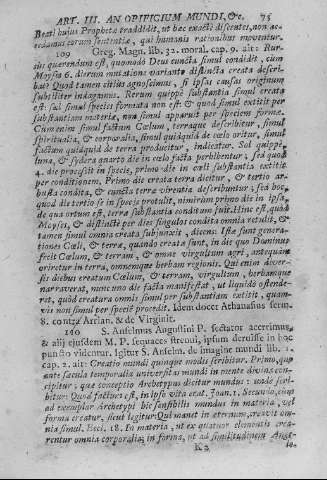 ART. III. AN OPIFICIUM MUNDI, &c. 75
Beati hujus Prophetæ traddidit, ut hæc exacte discentes, non ac-
cedamus eorum sententiæ, qui humanis rationibus moventur.
109 Greg. Magn. lib. 32. moral. cap. 9. ait: Rur-
sus quærendum est, quomodo Deus cuncta simul condidit, cum
Moyses 6. dierum mutatione variante distincta creata descri-
bat? Quod tamen citius agnoscimus, si ipsas causas originum
subtiliter indagamus. Rerum quippe substantia simul creata
est: sed simul species formata non est: & quod simul extitit per
substantiam materiæ, non simul apparuit per speciem formæ.
Cum enim simul factum Cœlum, terraque describitur, simul
spiritualia, & corporalia, simul quidquid de cœlo oritur, simul
factum quidquid de terra producitur, indicatur. Sol quippe,
luna, & sydera quarto die in cœlo facta perhibentur; sed quod
4. die processit in specie, primo die in cœli substantia extitit
per conditionem. Primo die creata terra dicitur, & tertio ar-
busta condita, & cuncta terræ virentia describuntur; sed hoc,
quod die tertio se in specie protulit, nimirum primo die in ipsa,
de qua ortum est, terræ substantia conditum fuit. Hinc est, quod
Moyses, & distincte per dies singulos condita omnia retulit, &
tamen simul omnia creata subjunxit, dicens: Istæ sunt genera-
tiones Cœli, & terræ, quando creatæ sunt, in die quo Dominus
fecit Cœlum, & terram, & omne virgultum agri, antequam
oriretur in terra, omnemque herbam regionis. Qui enim diver-
sis diebus creatum Cœlum, & terram, virgultum, herbamque
narraverat, nunc uno die facta manifestat, ut liquido ostende-
ret, quod creatura omnis simul per substantiam extitit, quam-
vis non simul per speciem procedit. Idem docet Athanasius serm.
8. contra Arrian. & de Virginit.
110 S. Anselmus Augustini P. sectator acerrimus,
& alij ejusdem M. P. sequaces strenui, ipsum deruisse in hoc
puncto videntur. Igitur S. Anselm. de imagine mundi lib. 1.
cap. 2. ait: Creatio mundi quinque modis scribitur. Primo, quo
ante sæcula temporalia universitas mundi in mente divina con-
cipitur: quæ conceptio Archetypus dicitur mundus: unde scri-
bitur: Quod factum est, in ipso vita erat. Joan. 1. Secundo, cum
ad exemplar Archetypi hic sensibilis mundus in materia, vel
forma creatur, sicut legitur: Qui manet in æternum, creavit om-
nia simul. Eccl. 18. In materia, ut ex quatuor elementis crea-
rentur omnia corporalia; in forma, ut ad similitudinem Ange-
K 2 lo-